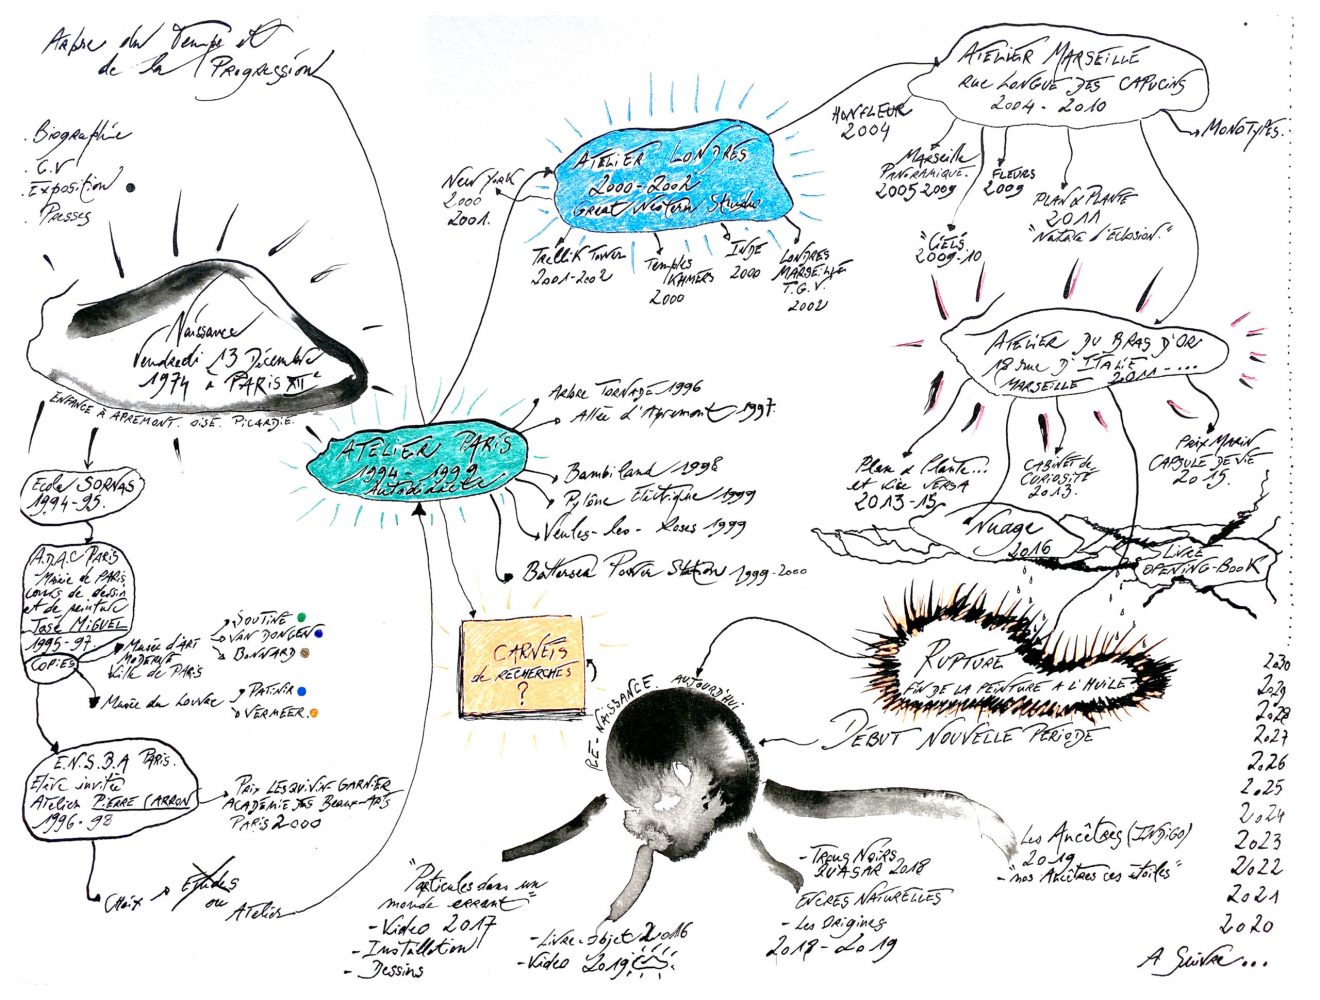 Arbre du Temps et
de la Progression
. Biographie
. C.V
. Exposition
Presses
Naissance
Vendredi 13 Décembre
1974 à PARIS XIIe
ENFANCE À APREMONT. OISE. PICARDIE.
Ecole SORNAS
1994-95.
A.D.A.C PARIS
- Mairie de PARIS
cours de dessin
et de peinture
José MIGUEL
1995-97.
COPIES
Musée d'ART
MODERNE
Ville de PARIS
SOUTINE
VAN DONGEN
BONNARD
Musée du Louvre
PATINIR
VERMEER.
E.N.S.B.A PARIS.
Elève invité
Atelier PIERRE CARRON
1996-98
Prix LESQUIVIN-GARNIER
ACADÉMIE DES BEAUX-ARTS
PARIS 2000
Choix
Etudes
ou
Atelier
ATELIER PARIS
1994-1999
Autodidacte
Arbre TORNADE 1996
Allée d'Apremont 1997.
Bambiland 1998
Pylône Electrique 1999
Veules-les-Roses 1999
Battersea Power Station 1999-2000
CARNETS
de RECHERCHES
?
NEW YORK
2000
2001.
ATELIER LONDRES
2000-2002
Great Western Studio
Trellik Tower
2001-2002
Temples
KHMERS
2000
INDE
2000
LONDRES
MARSEILLE
T.G.V.
2002
HONFLEUR
2004
ATELIER MARSEILLE
RUE LONGUE DES CAPUCINS
2004-2010
MONOTYPES.
Marseille
PANORAMIQUE.
2005-2009
FLEURS
2009
PLAN & PLANTE
2011
"Nature d'Eclosion."
"CIELS"
2009-10
ATELIER DU BRAS D'OR
18 rue D'ITALIE
MARSEILLE 2011-...
Plan & Plante...
et vice VERSA
2013-15
CABINET de
CURIOSITÉ
2013.
PRIX MARIN
CAPSULE DE VIE
2015.
Nuage
2016
LIVRE
OPENING-BOOK
RUPTURE
FIN DE LA PEINTURE A L'HUILE
DÉBUT NOUVELLE PÉRIODE
RE-NAISSANCE. AUJOURD'HUI
"Particules dans un
monde errant"
- Video 2017
- Installation
- Dessins
- Livre-objet 2016
- Video 2019
- Trous Noirs
QUASAR 2018
ENCRES NATURELLES
- Les Origines
2018-2019
Les Ancêtres (INDIGO)
2019
- "nos Ancêtres ces étoiles"
2030
2029
2028
2027
2026
2025
2024
2023
2022
2021
2020
A Suivre...